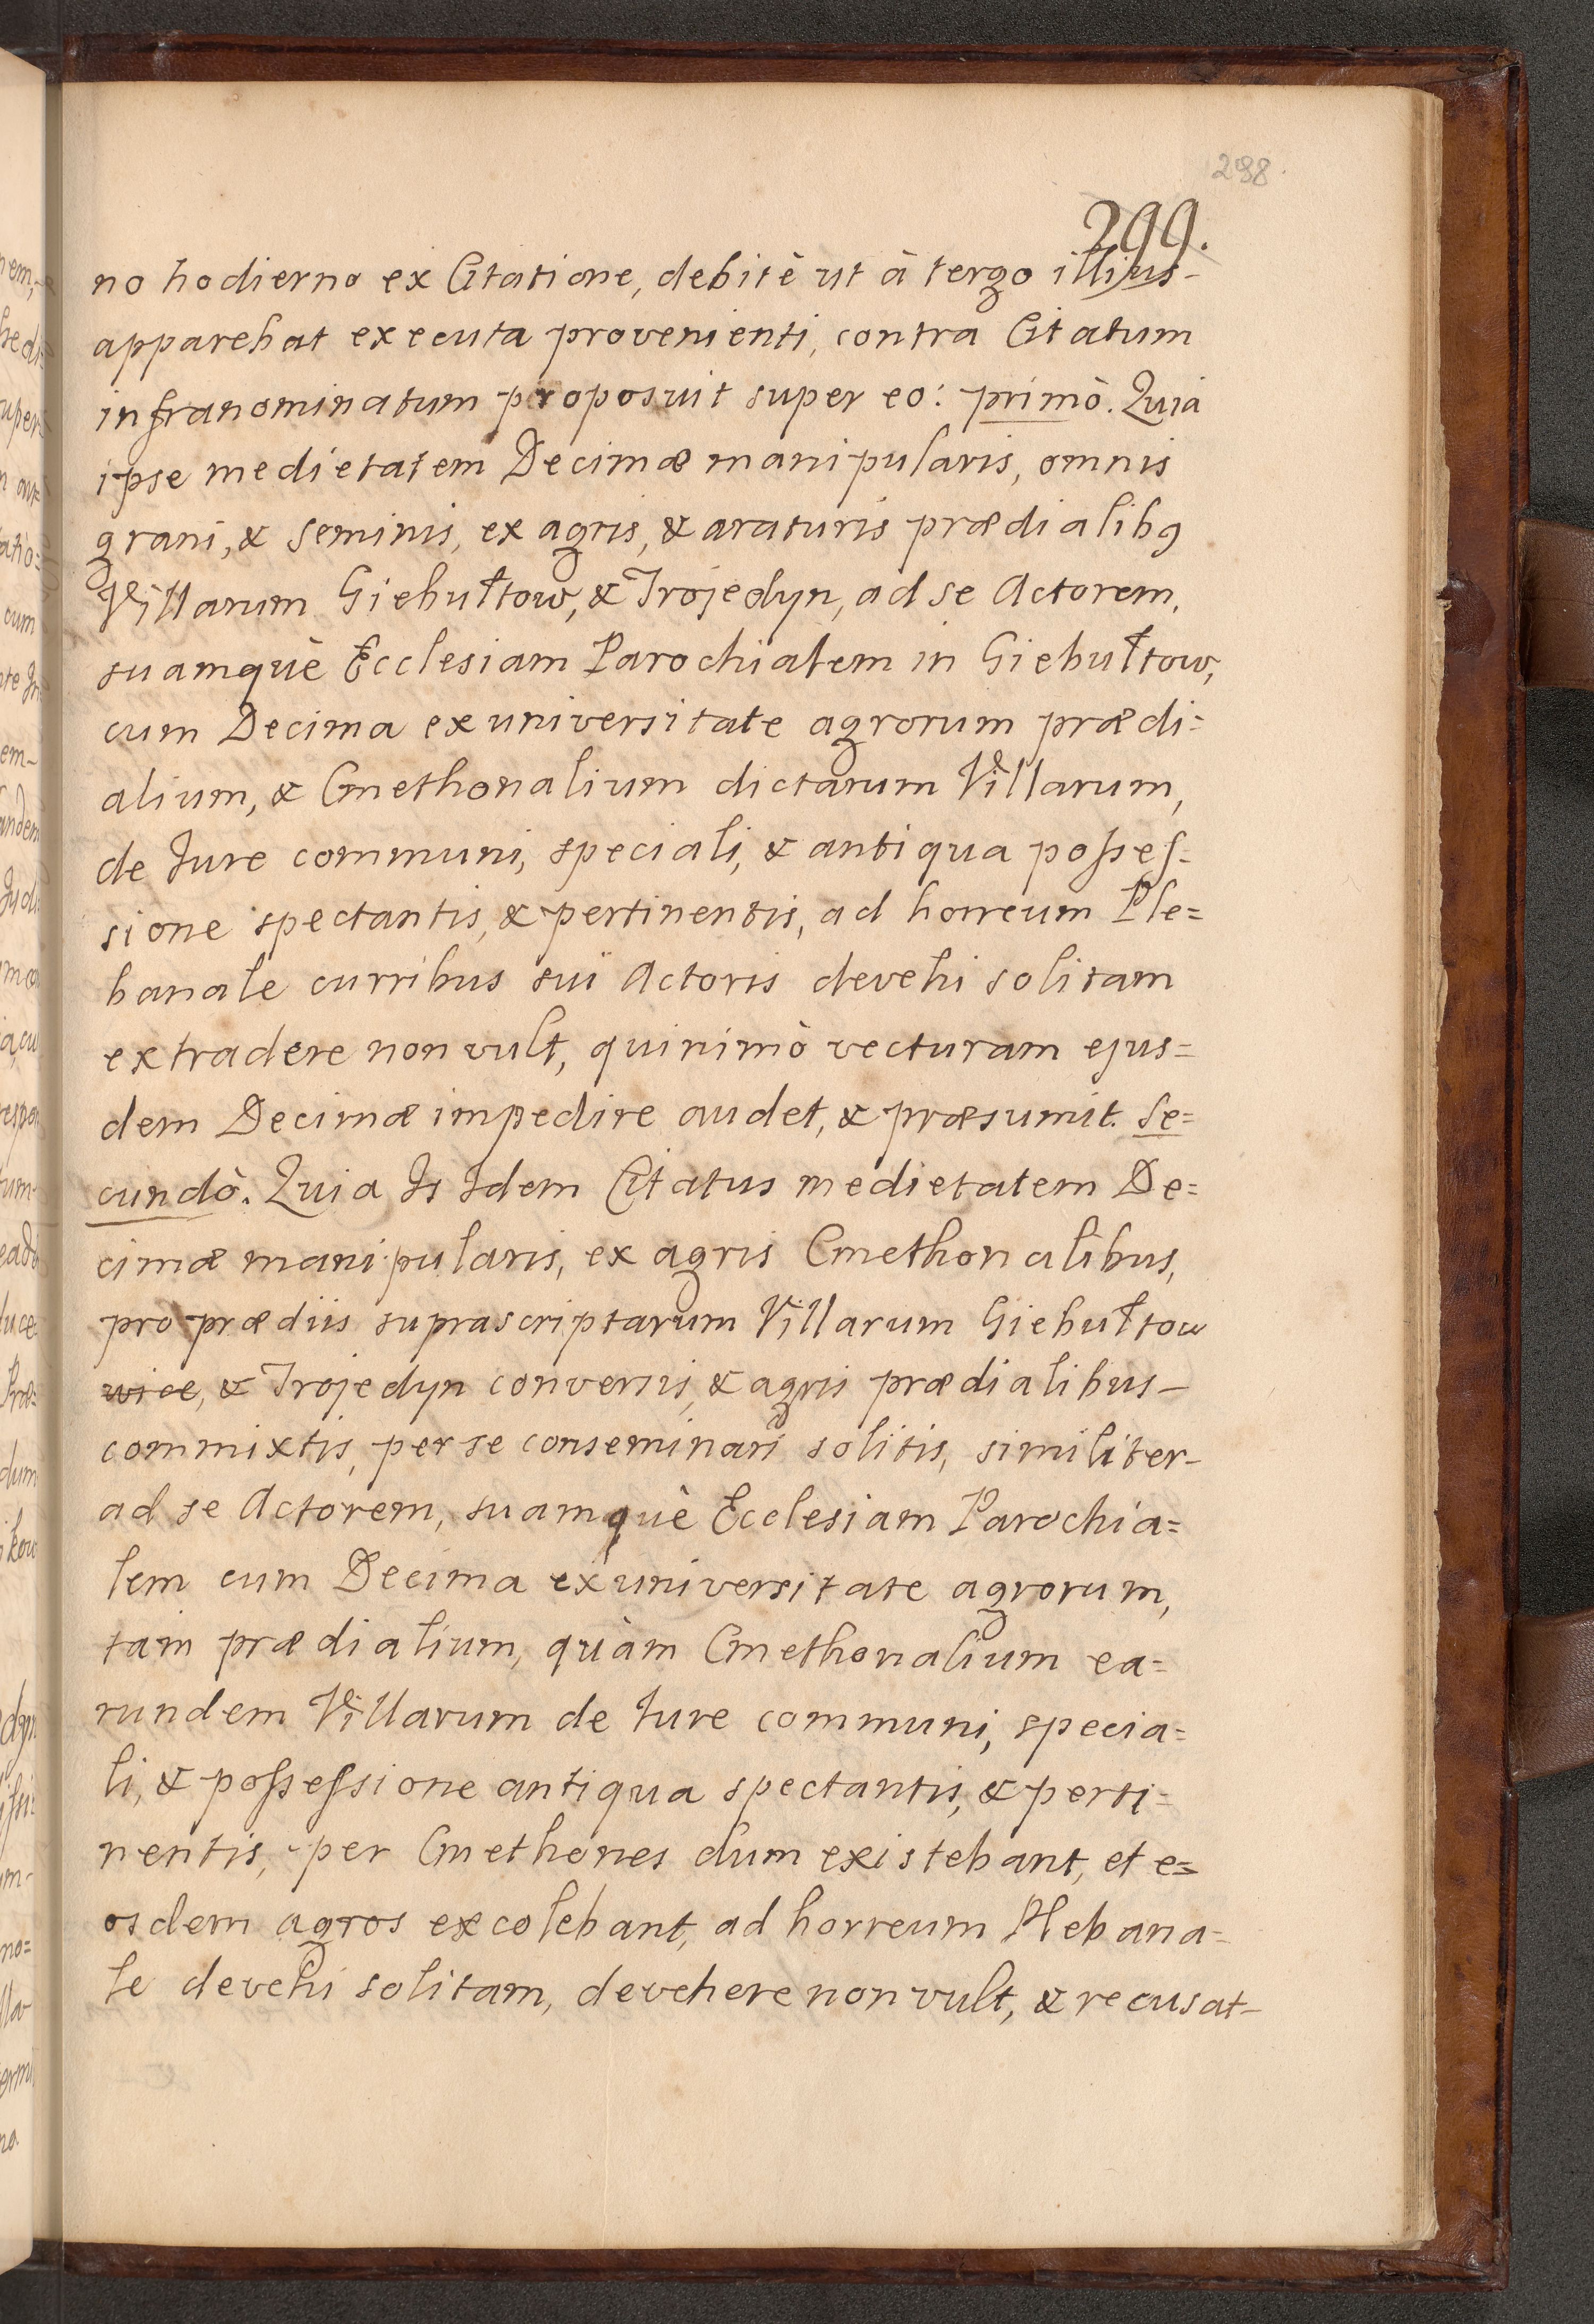 298
299.
no hodierno ex Citatione, debitè ut à tergo illius-
apparebat executa provenienti, contra Citatum
infranominatum proposuit super eo: primò. Quia
ipse medietatem Decimæ manipularis, omnis
grani, & seminis, ex agris, & araturis prædialibꝯ
Villarum Giebułtow, & Trojedyn, ad se Actorem,
suamquè Ecclesiam Parochialem in Giebułtow,
cum Decima ex universitate agrorum prædi=
alium, & Cmethonalium dictarum Villarum,
de Jure communi, speciali, & antiqua posses=
sione spectantis, & pertinentis, ad horreum Ple=
banale curribus sui Actoris devehi solitam
extradere non vult, quinimò vecturam ejus=
dem Decimæ impedire audet, & præsumit. Se=
cundò. Quia Is Idem Citatus medietatem De=
cimæ manipularis, ex agris Cmethonalibus,
pro prædiis suprascriptarum Villarum Giebułtow
wice, & Trojedyn conversis, & agris prædialibus-
commixtis, per se conseminari solitis, similiter-
ad se Actorem, suamquè Ecclesiam Parochia=
lem cum Decima ex universitate agrorum,
tam prædialium, quàm Cmethonalium ea=
rundem Villarum de Jure communi, specia=
li, & possessione antiqua spectantis, & perti=
nentis, per Cmethones dum existebant, et e=
osdem agros excolebant, ad horreum Plebana=
le devehi solitam, devehere non vult, & recusat-